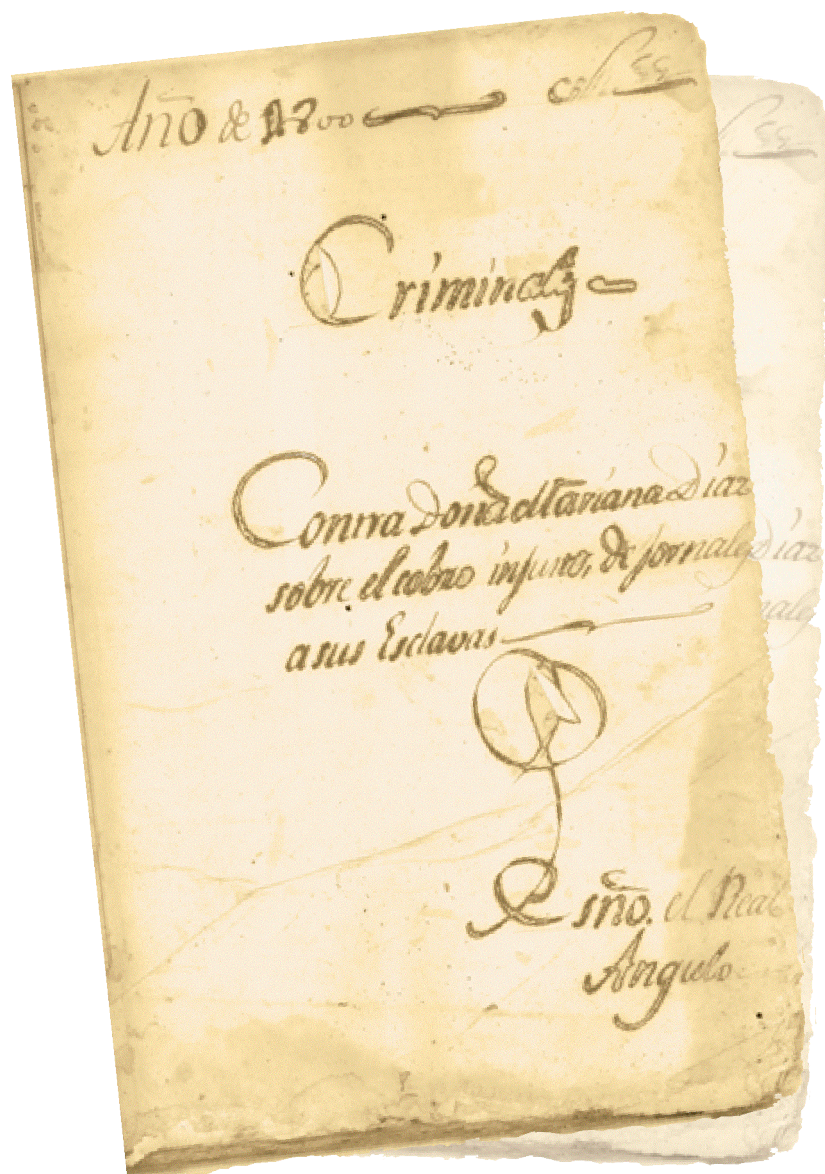 Año de 1800
Criminales
Contra Doña Mariana Díaz
sobre el cobro injusto, de jornales
a sus Esclavas
Esño. el Real
Angulo